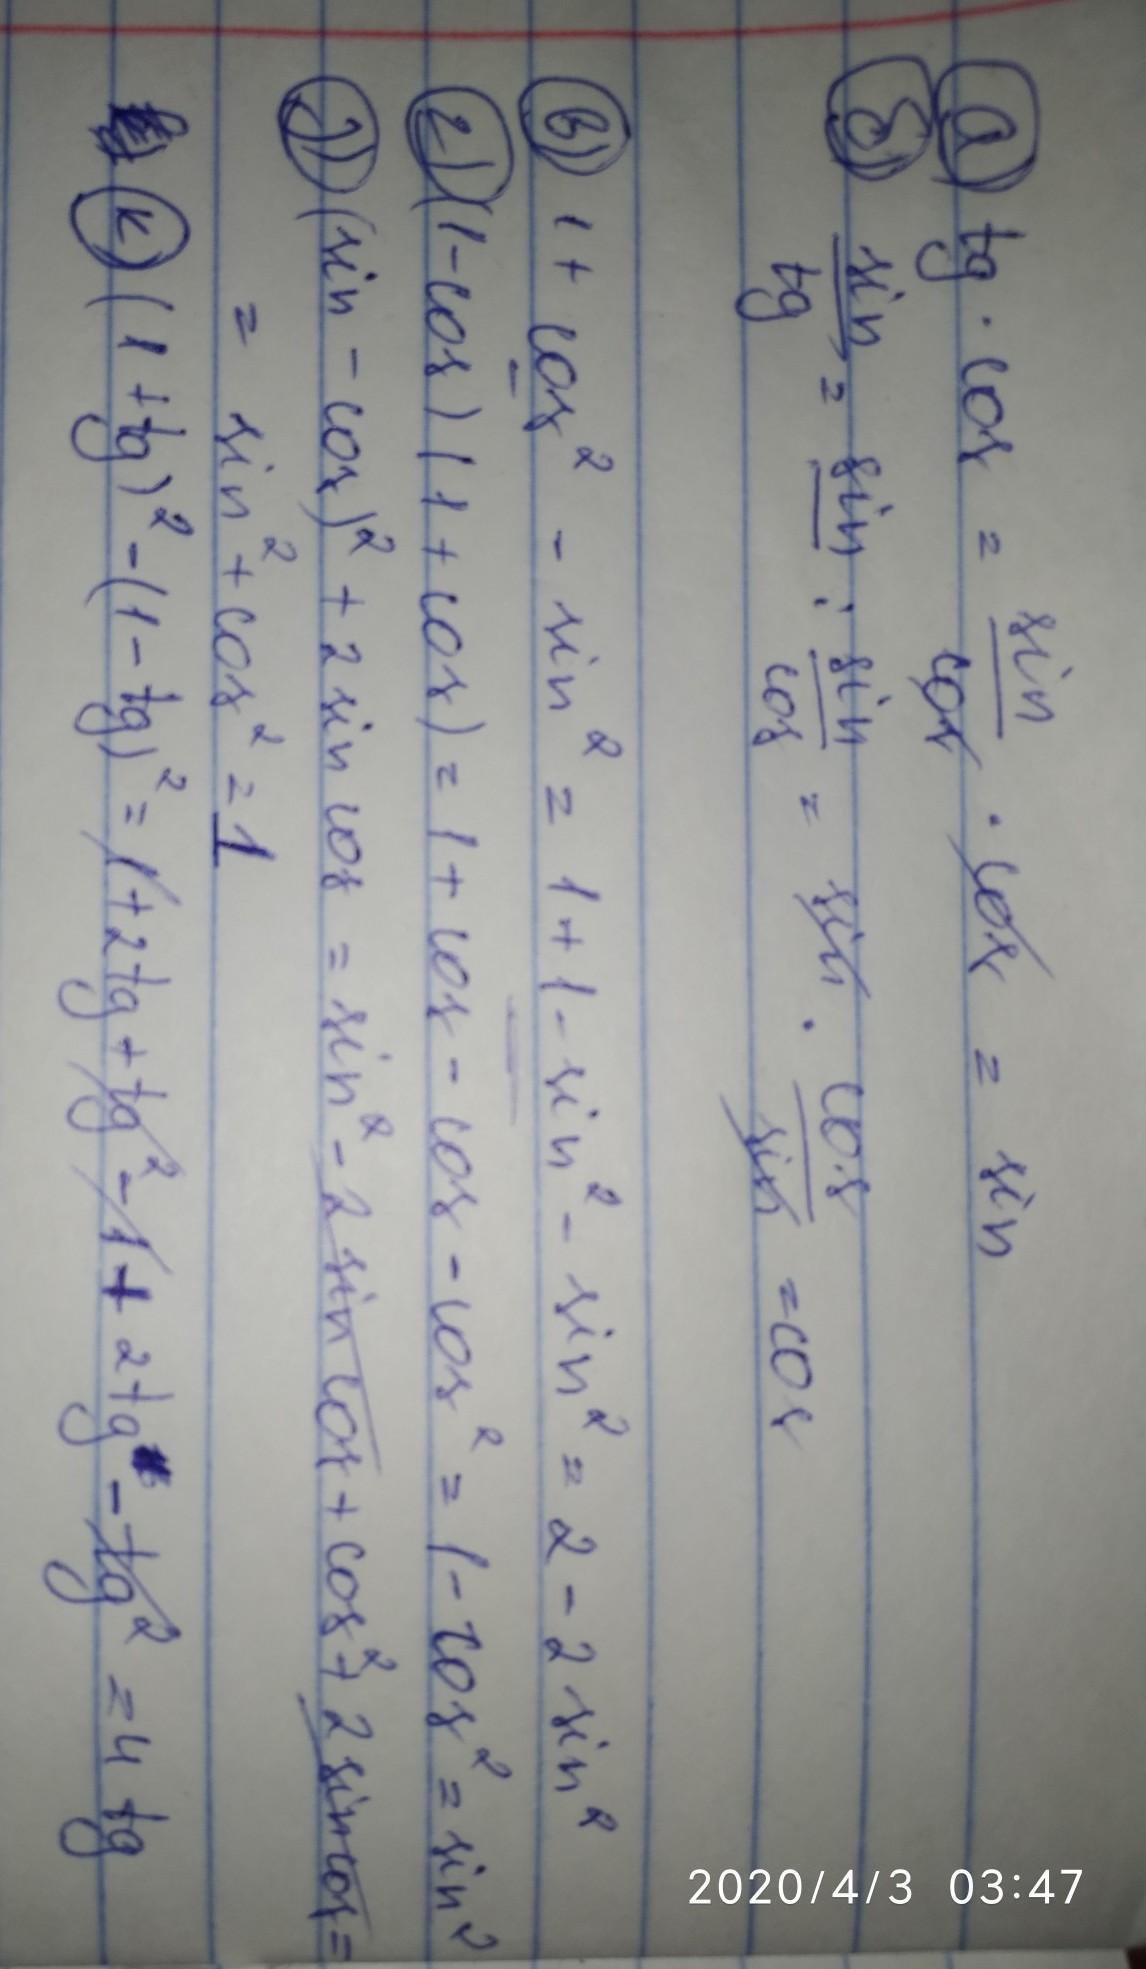 а) tg · cos = sin/cos · cos = sin
б) sin/tg = sin : sin/cos = sin · cos/sin = cos
в) 1 + cos² - sin² = 1 + 1 - sin² - sin² = 2 - 2 sin²
г) (1 - cos)(1 + cos) = 1 + cos - cos - cos² = 1 - cos² = sin²
) (sin - cos)² + 2 sin cos = sin² - 2 sin cos + cos² + 2 sin cos =
= sin² + cos² = 1
к) (1 + tg)² - (1 - tg)² = 1 + 2 tg + tg² - 1 + 2 tg - tg² = 4 tg
2020/4/3 03:47